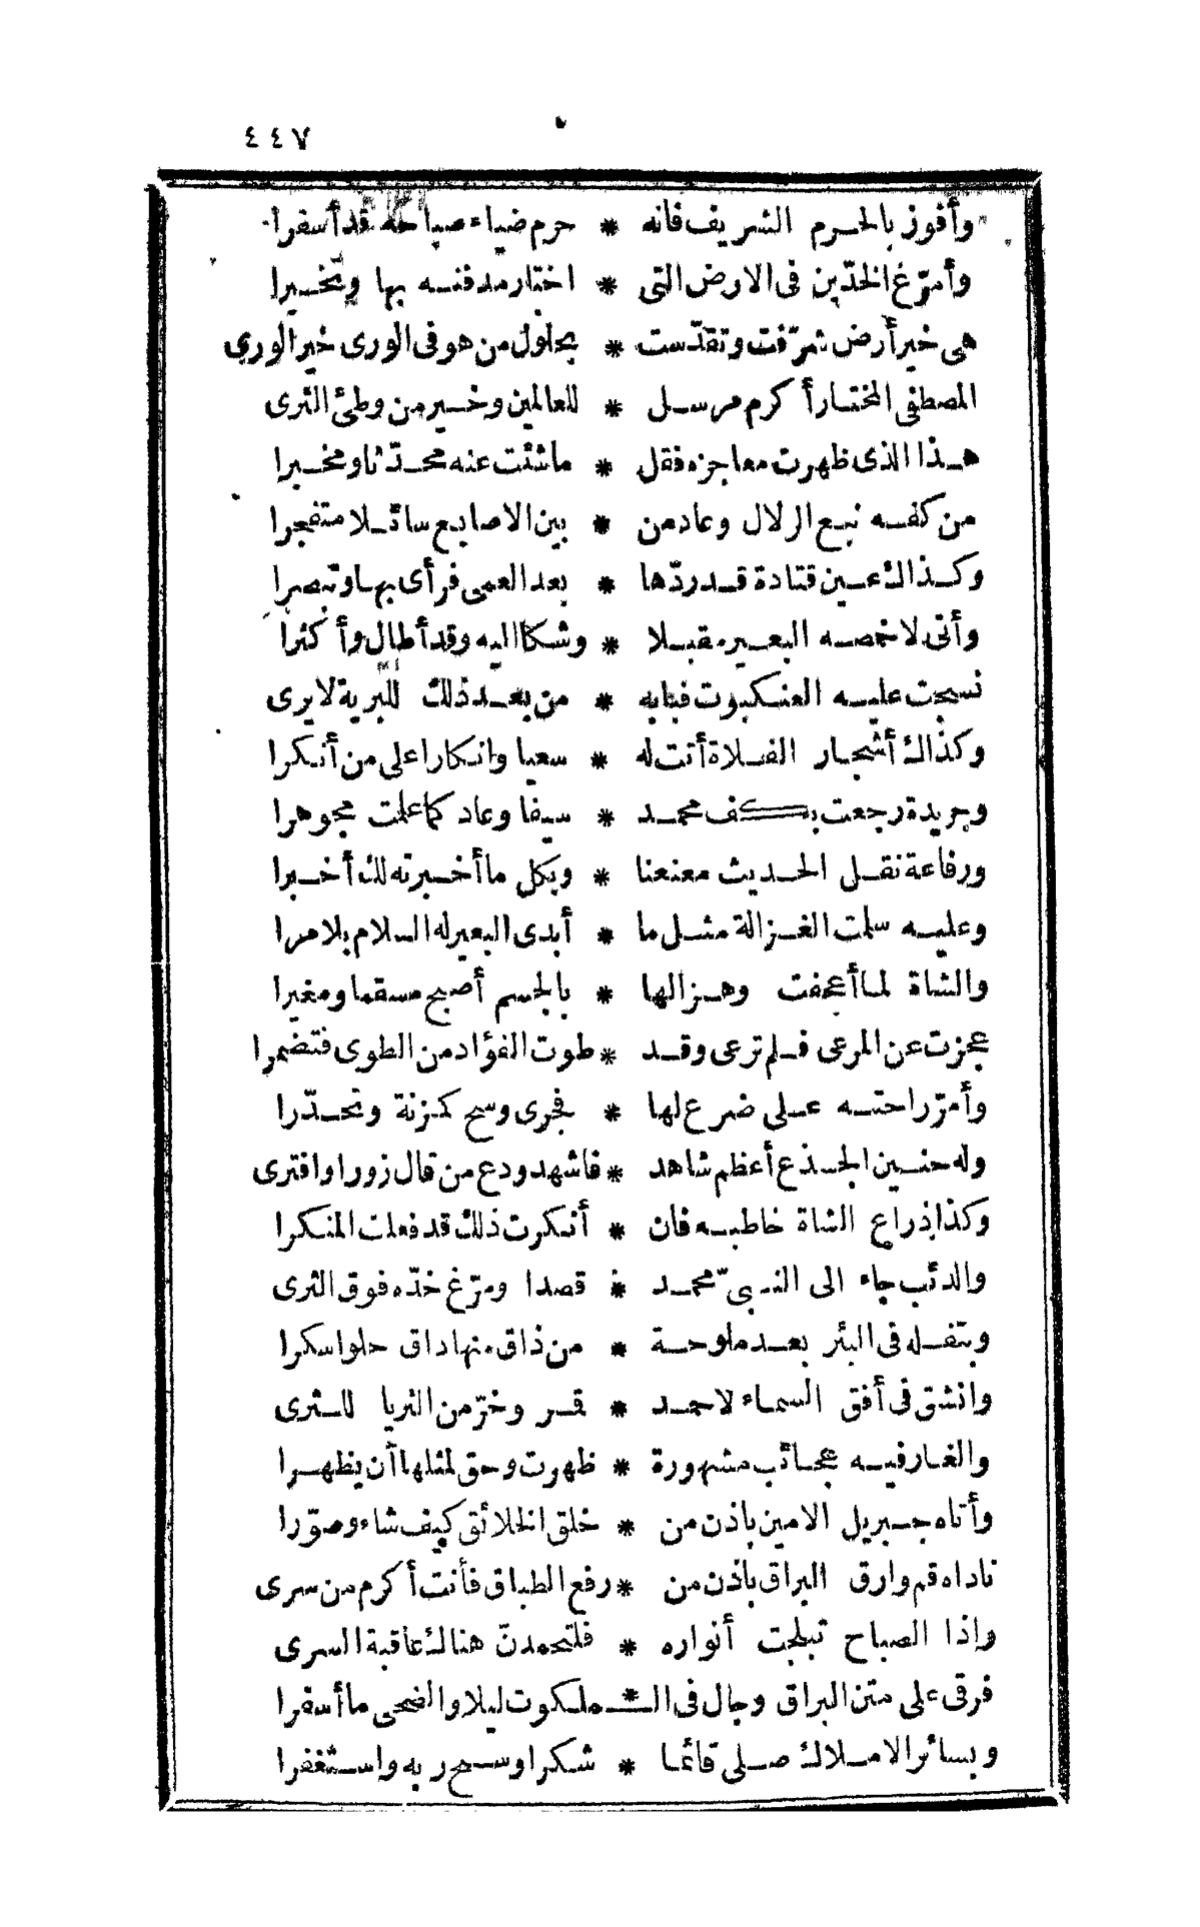 ٤٤٧
وأفوز بالحرم الشريف فانه * حرم ضياء صباحه قد أسفرا
وأمرّغ الخدّين فى الارض التى * اختار مدفنه بها وتخيرا
هى خير أرض شرّفت وتقدّست * بحلول من هو فى الورى خير الورى
المصطفى المختار أكرم مرسل * للعالمين وخير من وطئ الثرى
هذا الذى ظهرت معاجزه فقل * ماشئت عنه محدّثا ومخبرا
من كفه نبع الزلال وعاد من * بين الاصابع سائلا متفجرا
وكذاك عين قتادة قد ردّها * بعد العمى فرأى بها وتبصرا
وأتى لاخمصه البعير مقبلا * وشكا اليه وقد أطال وأكثرا
نسجت عليه العنكبوت فبابه * من بعد ذلك للبرية لايرى
وكذاك أشجار الفلاة أتت له * سعيا وانكارا على من أنكرا
وجريدة رجعت بكف محمد * سيفا وعاد كما علمت مجوهرا
ورفاعة نقل الحديث معنعنا * وبكل ما أخبرته لك أخبرا
وعليه سلمت الغزالة مثل ما * أبدى البعير له السلام بلا مرا
والشاة لما أعجفت وهزالها * بالجسم أصبح مسقما ومغيرا
عجزت عن المرعى فلم ترعى وقد * طوت الفؤاد من الطوى فتضمرا
وأمرّ راحته على ضرع لها * فجرى وسح كمزنة وتحدّرا
وله حنين الجذع أعظم شاهد * فاشهد ودع من قال زورا وافترى
وكذا ذراع الشاة خاطبه فان * أنكرت ذلك قد فعلت المنكرا
والدئب جاء الى النبىّ محمد * قصدا ومرّغ خدّه فوق الثرى
وبتفله فى البئر بعد ملوحة * من ذاق منها داق حلوا سكرا
وانشق فى أفق السماء لاحمد * قمر وخرّ من الثريا للثرى
والغار فيه عجائب مشهورة * ظهرت وحق لمثلها أن يظهرا
وأتاه جبريل الامين باذن من * خلق الخلائق كيف شاء وصوّرا
ناداه قم وارق البراق باذن من * رفع الطباق فأنت أكرم من سرى
واذا الصباح تبلجت أنواره * فلتحمدنّ هنالك عاقبة السرى
فرقى على متن البراق وجال فى الـ * ـملكوت ليلا والضحى ما أسفرا
وبسائر الاملاك صلى قائما * شكرا وسبح ربه واستغفرا